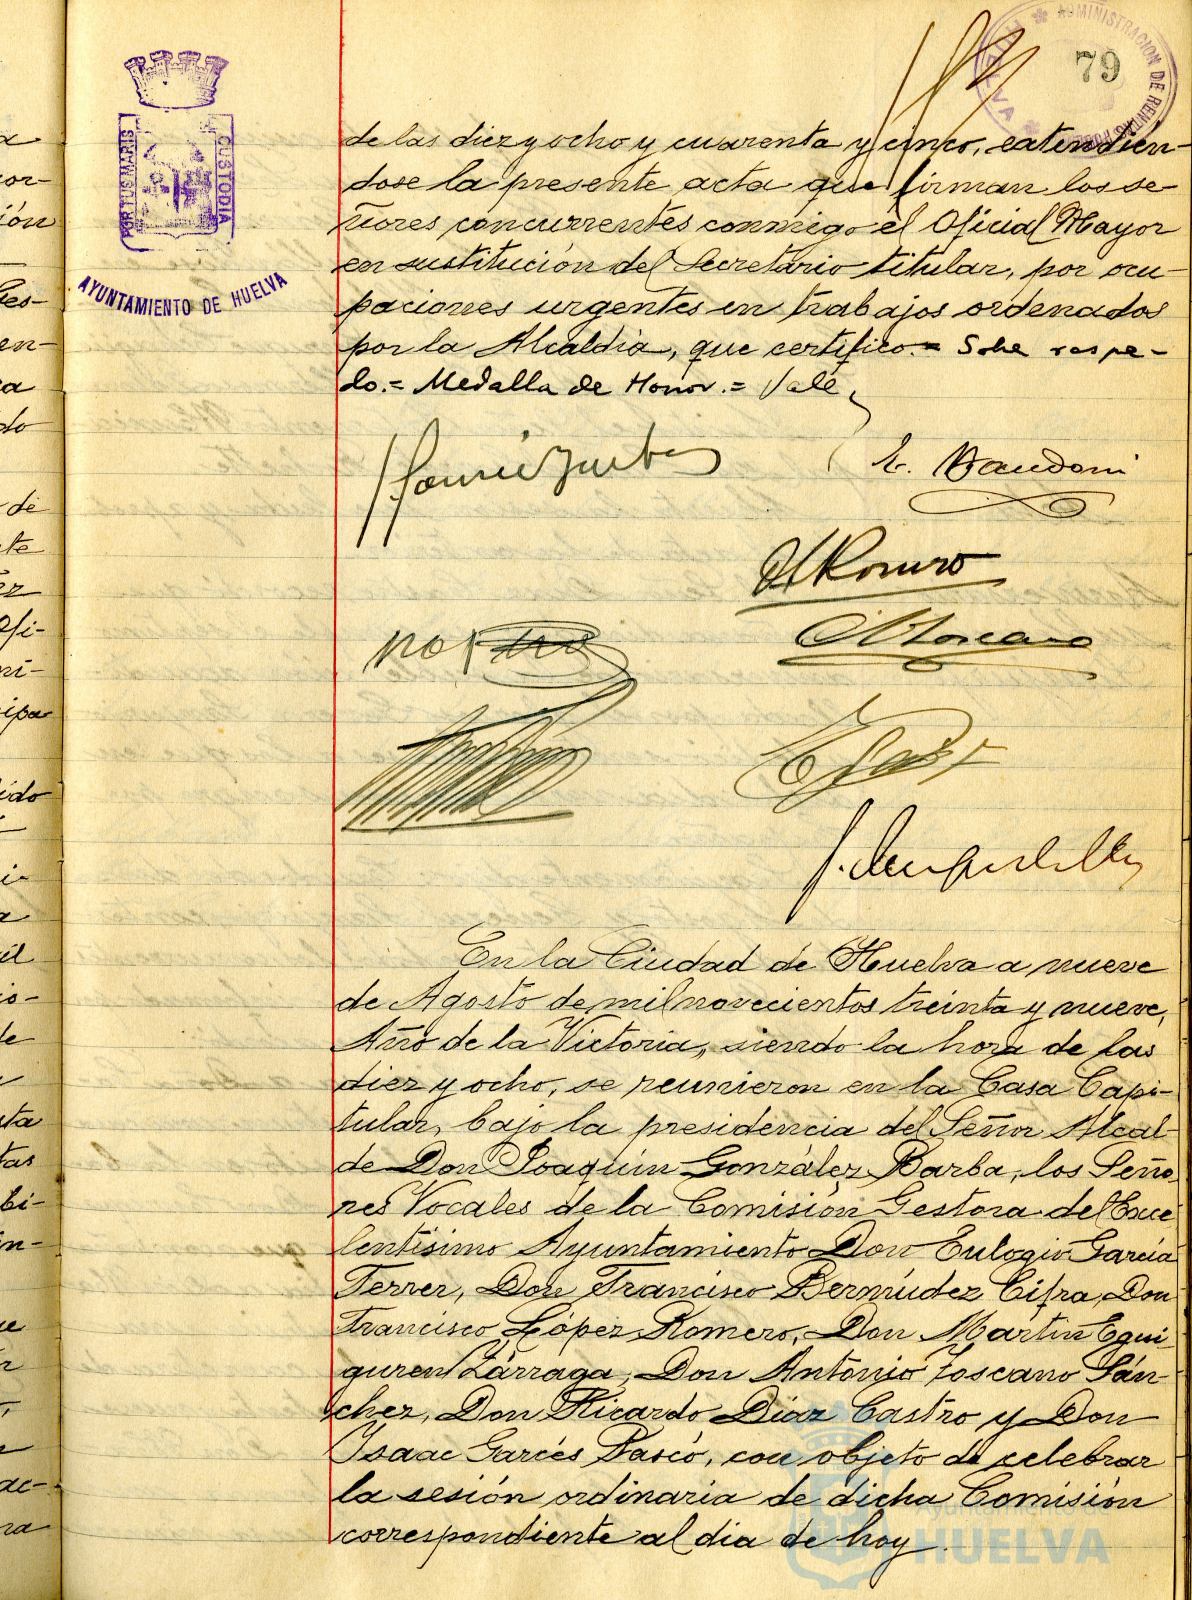 79
ADMINISTRACION DE RENTAS PUBLICAS
HUELVA
PORTUS MARIS
CUSTODIA
AYUNTAMIENTO DE HUELVA
de las diez y ocho y cuarenta y cinco, extendién-
dose la presente acta que firman los se-
ñores concurrentes conmigo el Oficial Mayor
en sustitución del Secretario titular, por ocu-
paciones urgentes en trabajos ordenados
por la Alcaldia, que certifico.= Sobe raspa-
do.= Medalla de Honor.= Vale,
Romero
Toscano
En la Ciudad de Huelva a nueve
de Agosto de mil novecientos treinta y nueve,
Año de la Victoria, siendo la hora de las
diez y ocho, se reunieron en la Casa Capi-
tular, bajo la presidencia del Señor Alcal
de Don Joaquín González Barba, los Seño
res Vocales de la Comisión Gestora del Exce
lentísimo Ayuntamiento Don Eulogio García
Ferrer, Don Francisco Bermúdez Cifra, Don
Francisco López Romero, Don Martín Egui-
guren Zárraga, Don Antonio Toscano Sán-
chez, Don Ricardo Díaz Castro y Don
Isaac Garcés Pascó, con objeto de celebrar
la sesión ordinaria de dicha Comisión
correspondiente al dia de hoy.
Ayuntamiento de
HUELVA